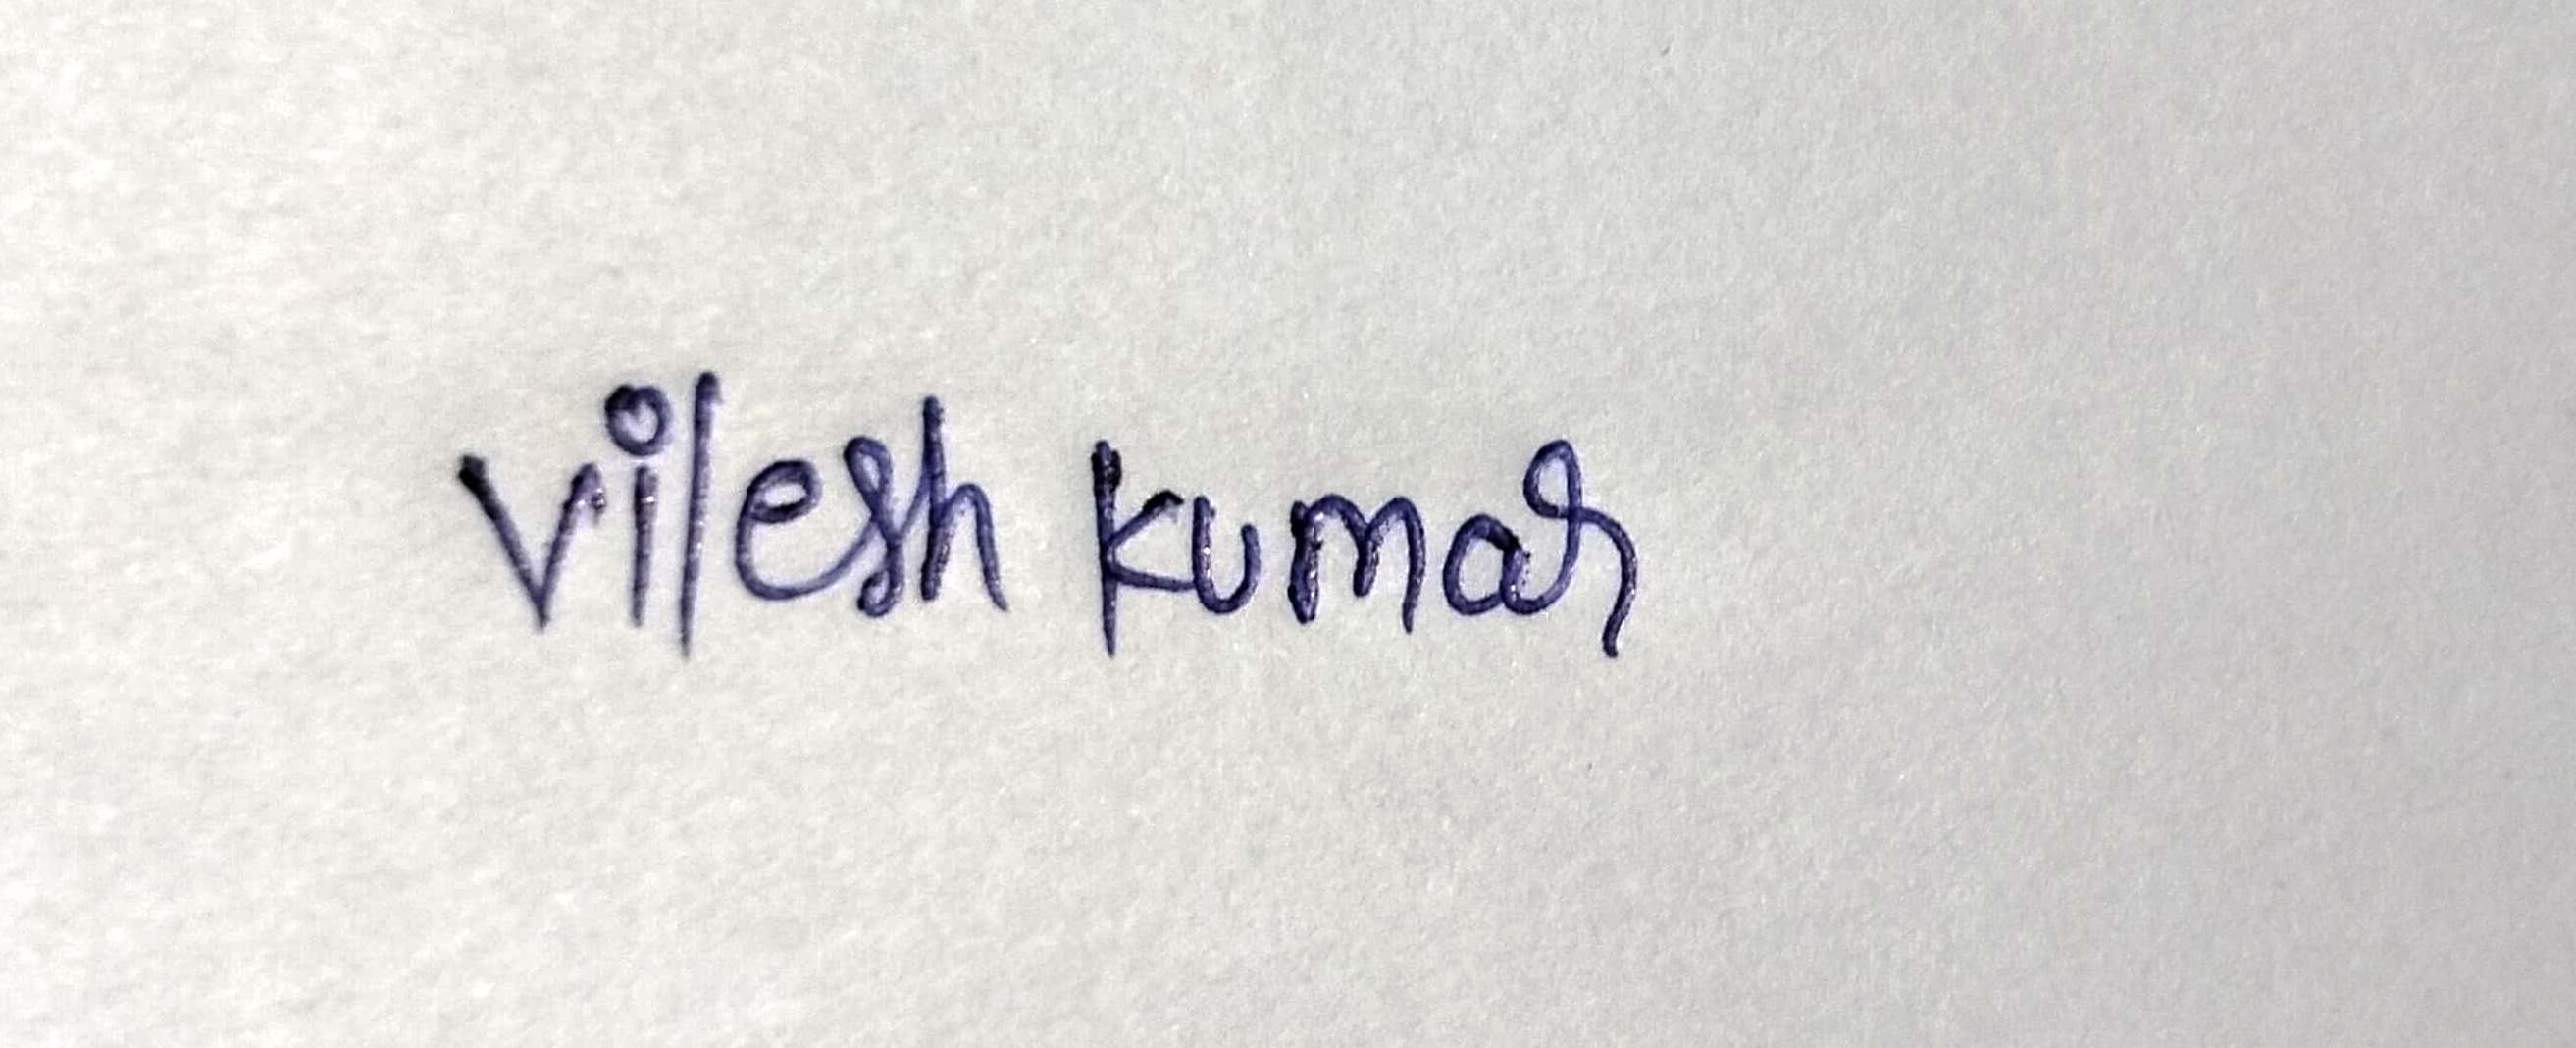 vilesh kumar